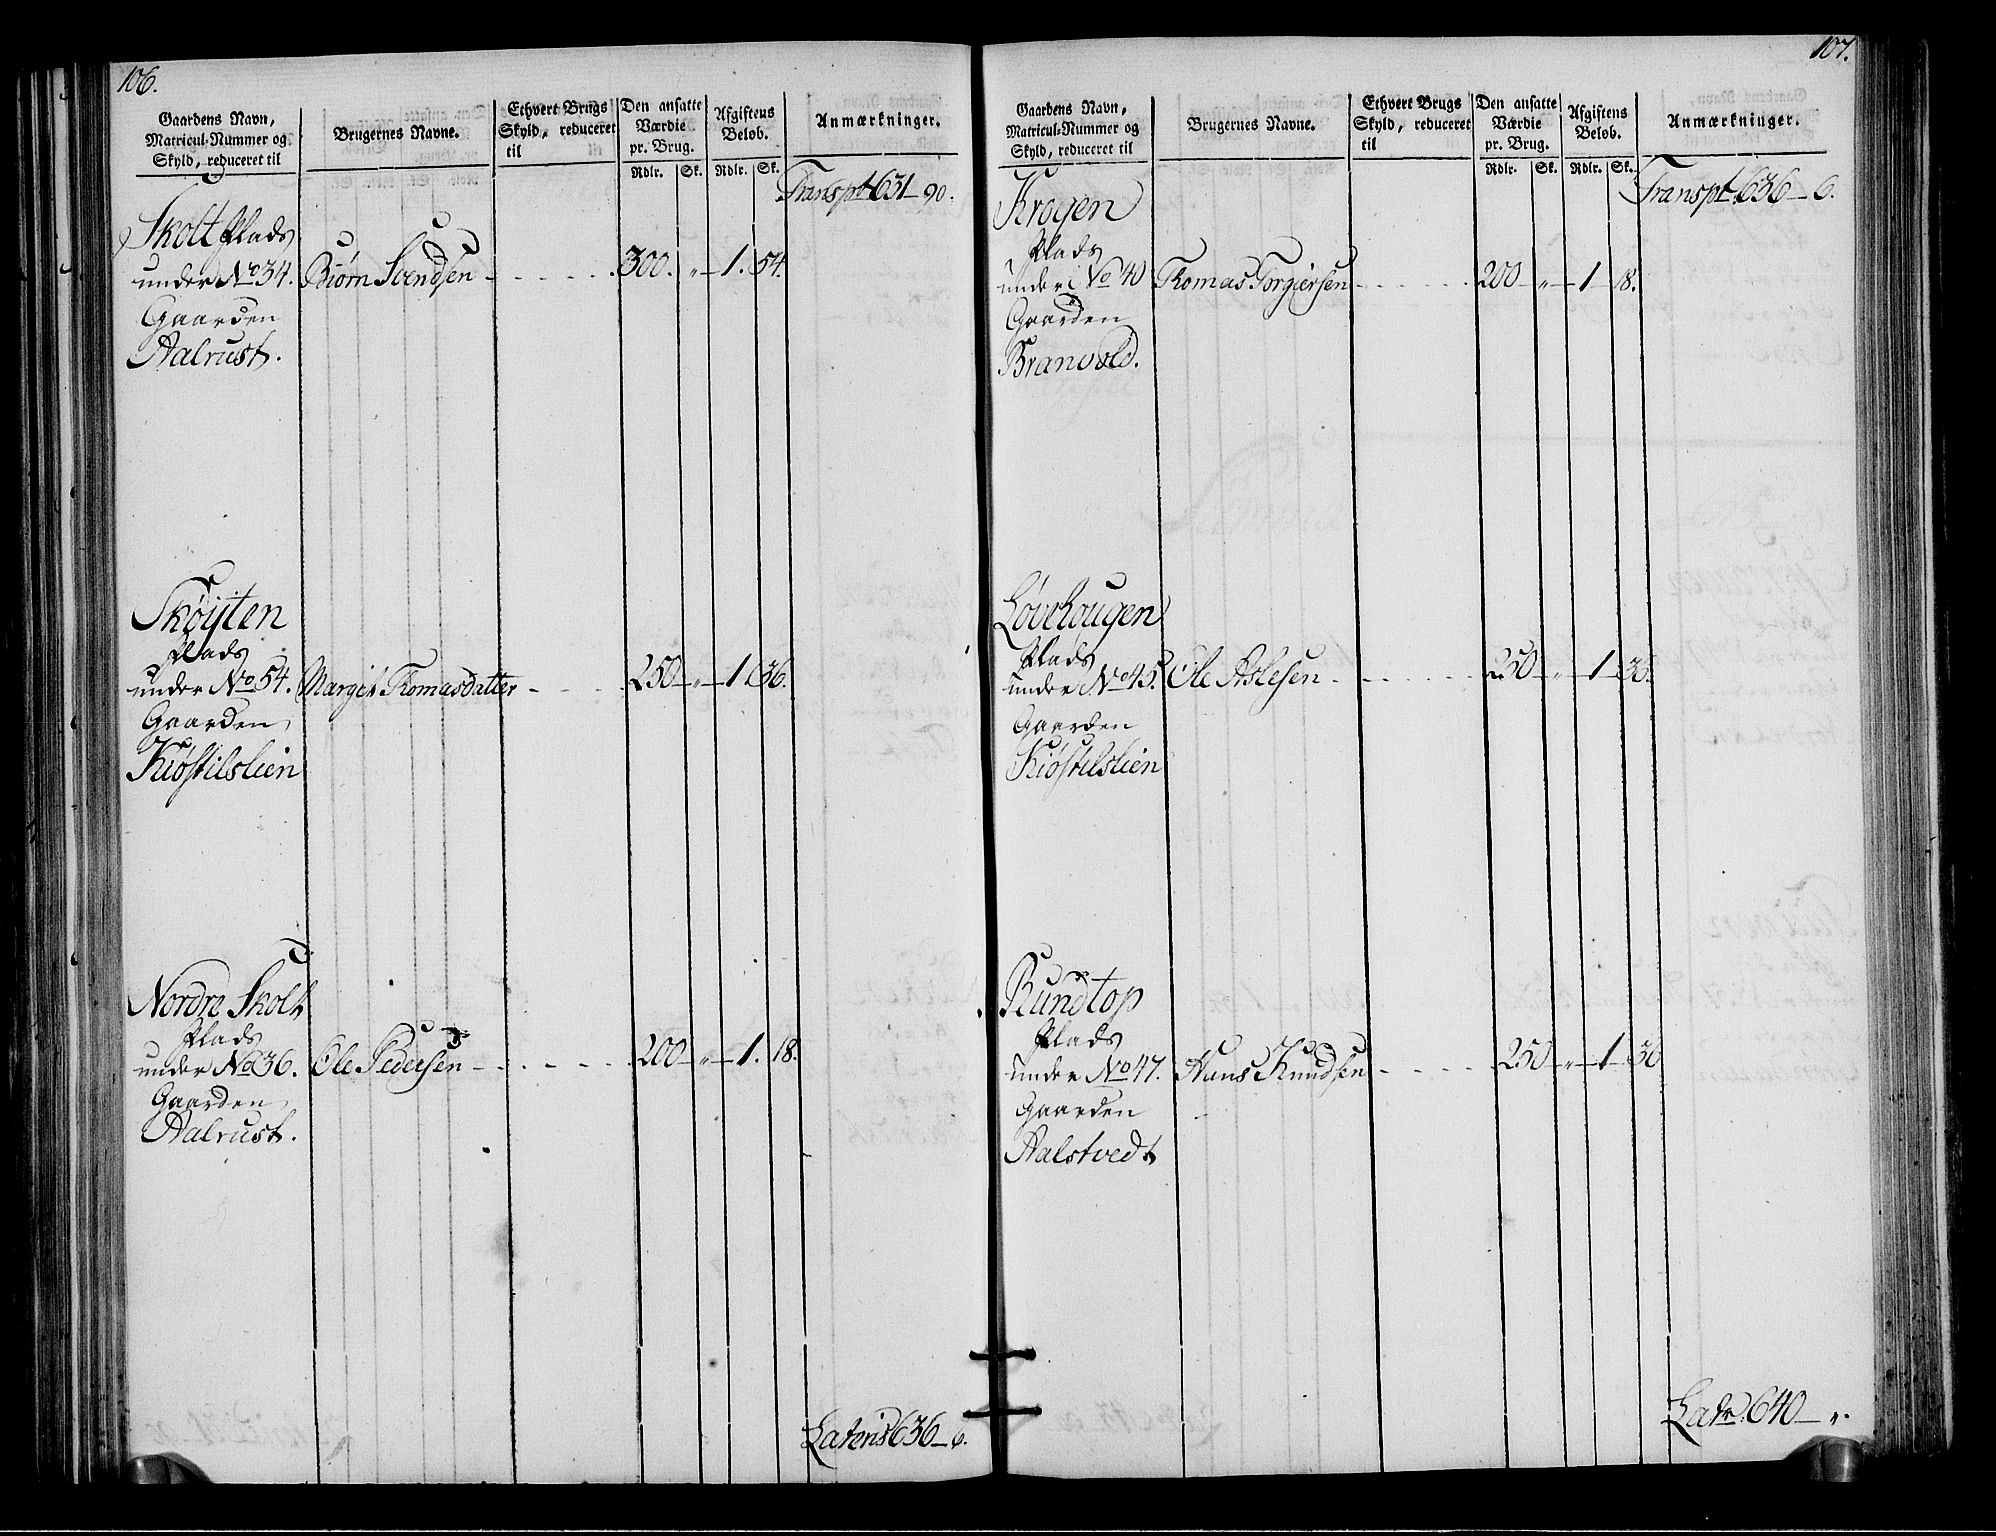 106.
Gaardens Navn,
Matricul-Nummer og
Skyld, reduceret til
Brugernes Navne.
Ethvert Brugs
Skyld, reduceret
til
Den ansatte
Værdie
pr. Brug.
Afgiftens
Beløb.
Anmærkninger.
Rdlr. Sk. Rdlr. Sk.
Transpt 631 - 90.
Skolt Plads
under No 34. Biørn Svendsen - - - - - - 300. " 1. 54.
Gaarden
Aalrust.
Skøyten
Plads
under No 54. Margit Thomasdatter - - - 250 " 1. 36.
Gaarden
Kiøstilslien
Nordre Skolt
Plads
under No 36. Ole Pedersen - - - - - - 200 " 1. 18.
Gaarden
Aalrust.
Lateris 636 - 6.
107.
Gaardens Navn,
Matricul-Nummer og
Skyld, reduceret til
Brugernes Navne.
Ethvert Brugs
Skyld, reduceret
til
Den ansatte
Værdie
pr. Brug.
Afgiftens
Beløb.
Anmærkninger.
Rdlr. Sk. Rdlr. Sk.
Transpt. 636 - 6.
Krogen
Plads
under No 40 Thomas Torgiersen - - - - - 200 " 1 18.
Gaarden
Branvold.
Løvehougen
Plads
under No 45. Ole Aslesen - - - - - - 250 " 1 36.
Gaarden
Kiøstilslien
Rundtop
Plads
under No 47. Hans Knudsen - - - - - 250 " 1 36
Gaarden
Aalstvedt
Latr. 640 - ".